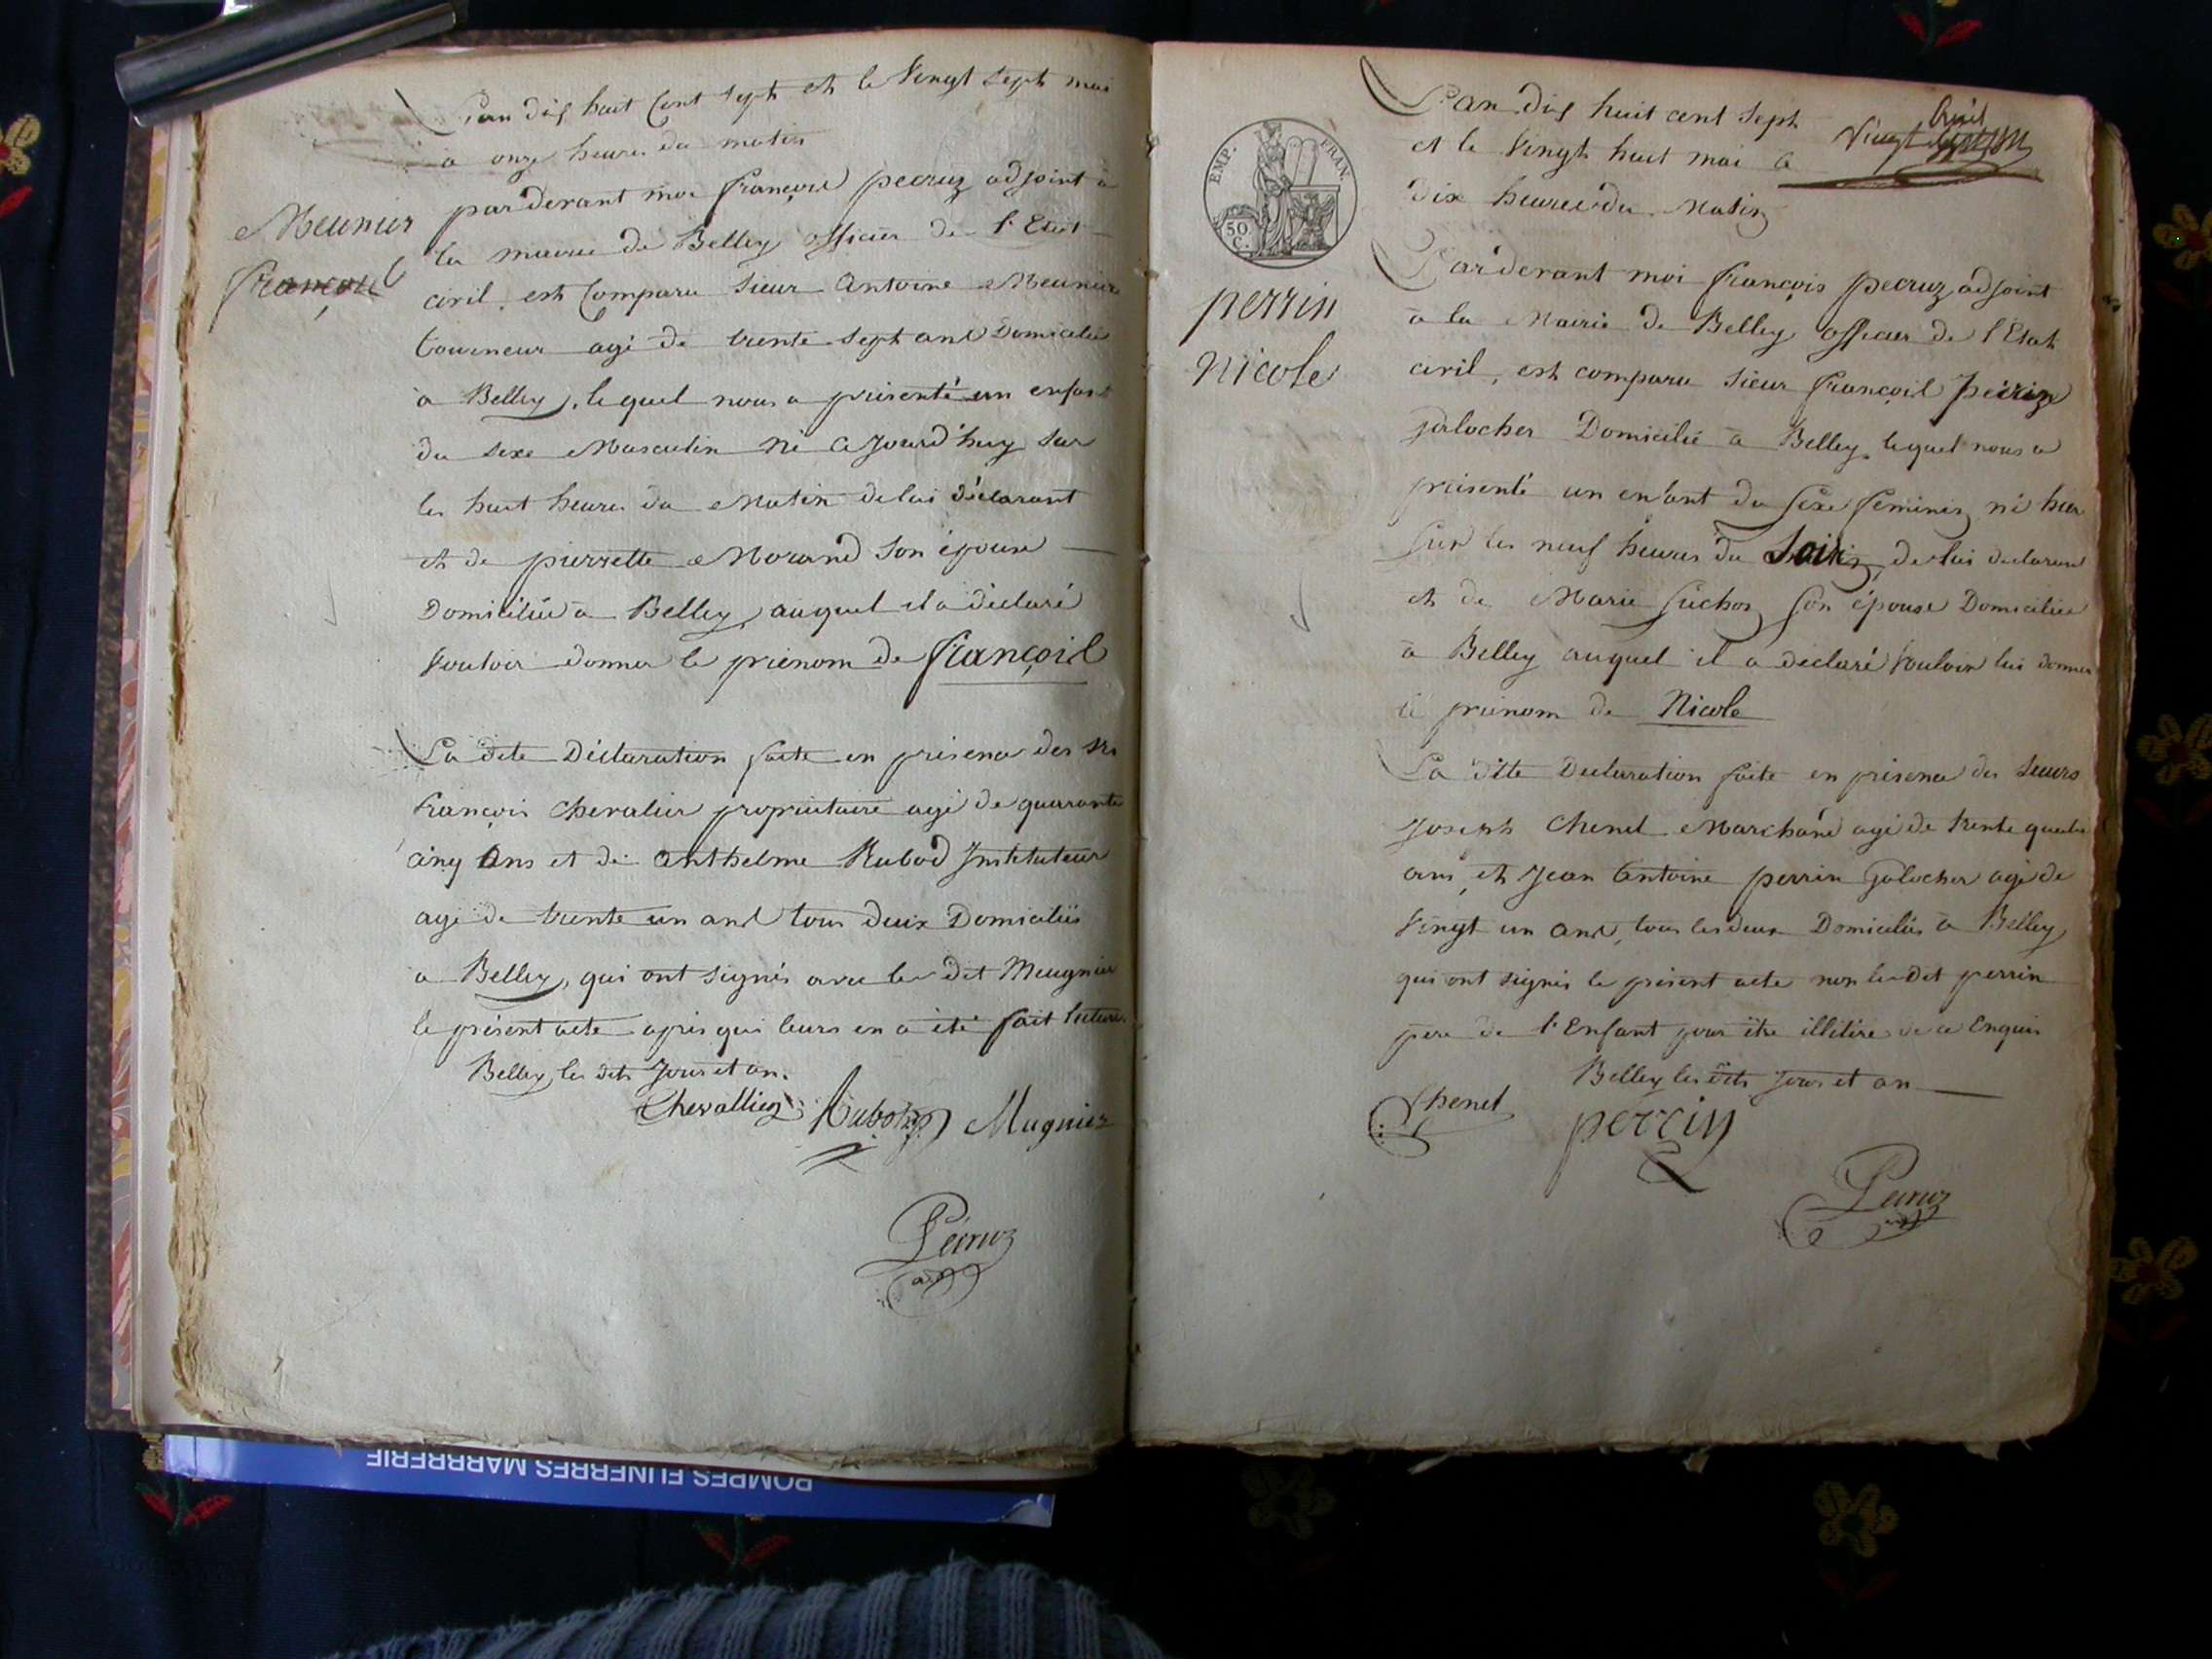 L'an dix huit Cent sept et le Vingt sept mai
a onze heures du matin
Meunier
françois
pardevant moi françois pecruz adjoint a
la mairie de Belley officier de l'Etat
civil, est Comparu Sieur Antoine Meunier
tourneur agé de trente sept ans Domicilié
à Belley, lequel nous a présenté un enfant
du sexe Masculin né Ce jourd'huy sur
les huit heures du Matin de lui déclarant
et de pierrette Morand son épouse
Domiciliée a Belley auquel il a déclaré
Vouloir donner le prénom de françois
La dite Déclaration faite en présence des srs
francois Chevalier propriétaire agé de quarante
cinq Ans et de Anthelme Rubod Instituteur
agé de trente un ans tous deux Domiciliés
a Belley, qui ont signés avec le dit Meugnier
le présent acte apres qui leurs en a été fait lecture.
Belley les dits Jour et an.
Chevallier Rubod Mugnier
Pécruz
adj
EMP. FRAN.
50
C.
perrin
nicole
L'an dix huit cent sept
et le Vingt huit mai a
dix heures du Matin
Vingt huit
Pardevant moi françois pecruz adjoint
à la Mairie de Belley officier de l'Etat
civil, est comparu Sieur françois perrin
galocher Domicilié a Belley lequel nous a
présenté un enfant du sexe feminin né hier
sur les neuf heures du Soir, de lui declarant
et de Marie Suchon son épouse Domiciliée
a Belley auquel il a déclaré Vouloir lui donner
le prénom de Nicole
La ditte Declaration faite en présence des Sieurs
Joseph Chenel Marchand agé de trente quatre
ans, et Jean Antoine perrin galocher agé de
Vingt un ans, tous les deux Domiciliés à Belley
qui ont signés le présent acte non le dit perrin
pere de l'Enfant pour être illitére de ce Enquis
Belley les dits Jour et an
Chenel perrin
Pécruz
adj
POMPES FUNEBRES MARBRERIE